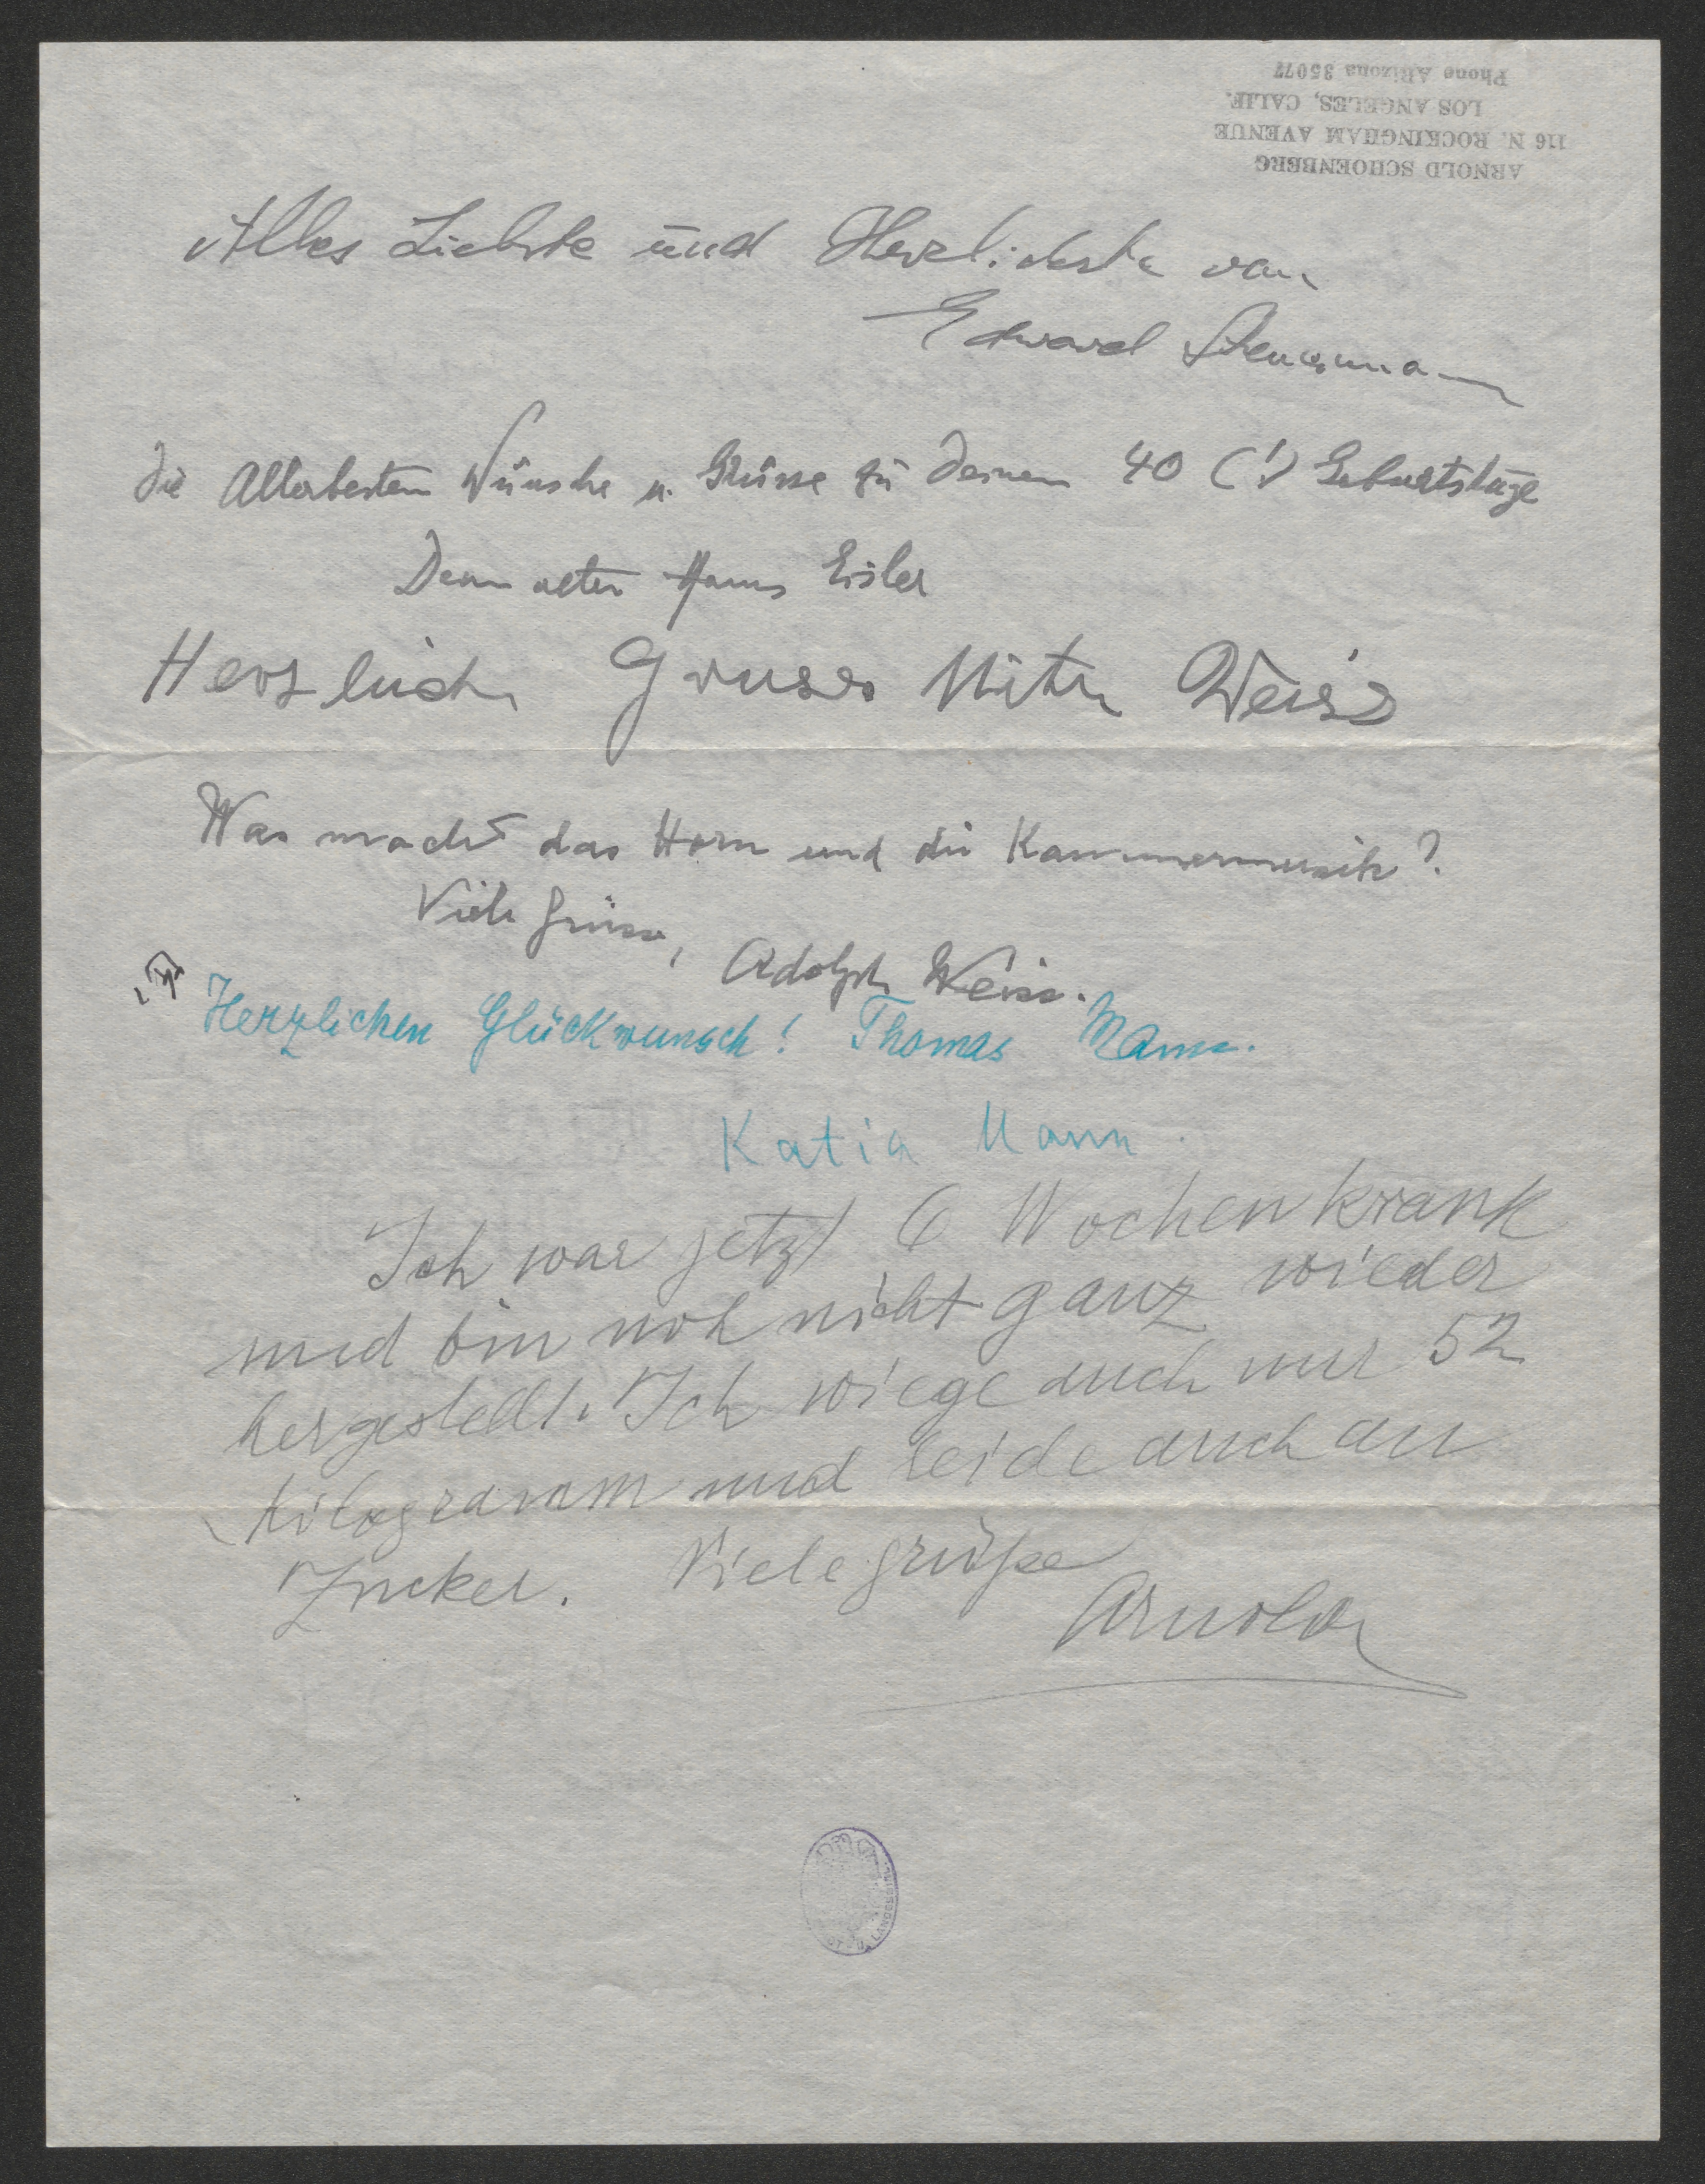 ARNOLD SCHOENBERG
116 N. ROCKINGHAM AVENUE
LOS ANGELES, CALIF.
Phone ARizona 35077
Alles Liebste und Herzlichste von
Edward Steuermann
Die Allerbesten Wünsche u. Grüsse zu Deinem 40 (!) Geburtstage
Dein alter Hanns Eisler
Herzliche Gruss Mitzi Weiss
Was macht das Horn und die Kammermusik?
Viele Grüsse, Adolph Weiss.
Herzlichen Glückwunsch! Thomas Mann.
Katia Mann.
Ich war jetzt 6 Wochen krank
und bin noch nicht ganz wieder
hergestellt. Ich wiege auch nur 52
Kilogramm und leide auch an
Zucker. Viele Grüße
Arnold